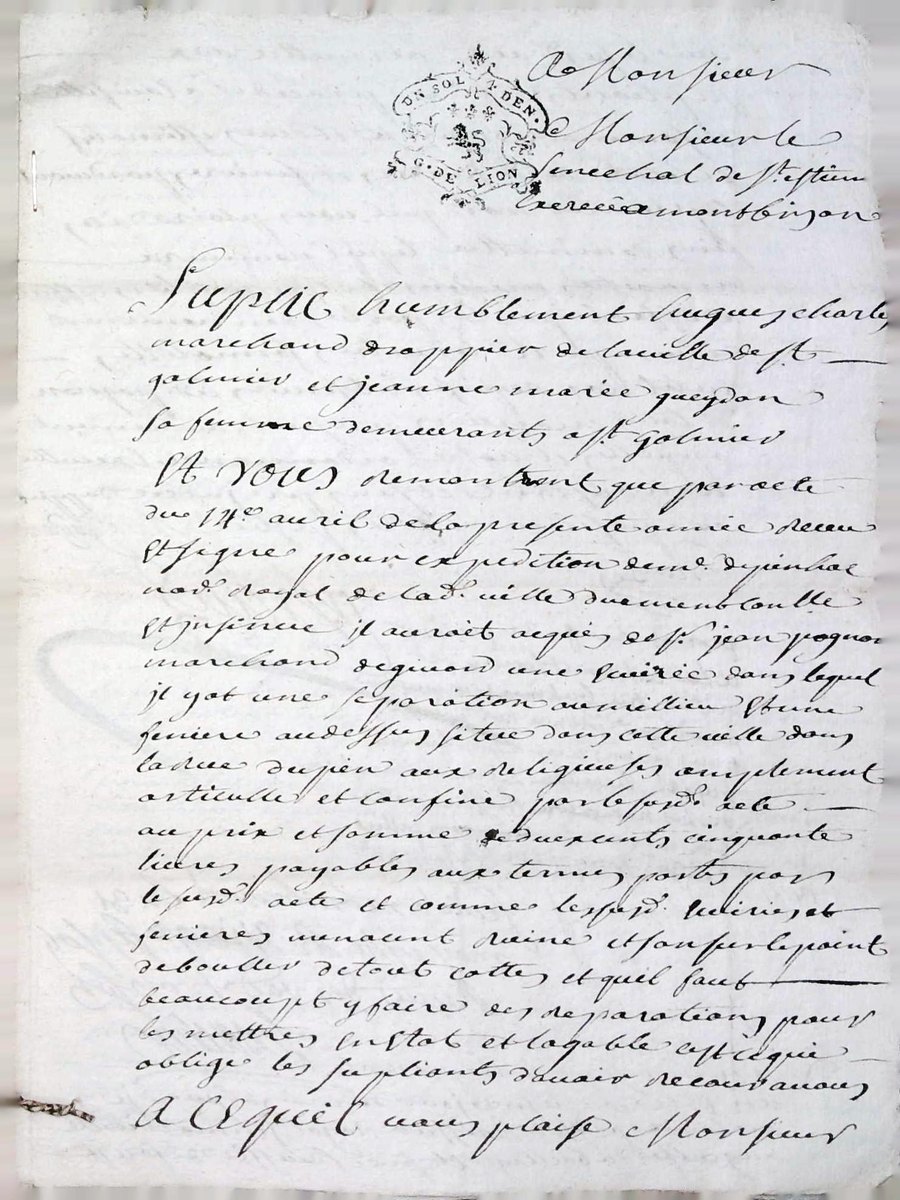 A Monsieur
UN SOL 4 DEN.
G. DE LION
Monsieur le
Senechal de st estien
Exercée a montbrison
Suplie humblement hugues charles
marchand drappier de laville de st
galmier et jeanne marie gueydon
sa femme demeurants a st galmier
Et vous remontrent que par acte
du 14e avril de la presente année receu
Et signe pour expedition de me
nore royal de lade ville duement controlle
Et jnsinue jl auroit acquis de sr jean pognon
marchand une Ecuirée dans lequel
jl y at une separation au millieu Et une
feniere audessus situe dans cette ville dans
la rue aux religieuses amplement
articulle et confine par le susde acte
au prix et somme de deux cents cinquante
livres payables aux termes portés par
le susde acte et comme les susde Ecuiries et
fenieres menacent ruine et son sur le point
de boulles de tout cottes et quil faut
beaucoupt y faire des reparations pour
les mettres en Etat et logable cest ce qui
oblige les supliants davoir recour a vous
A CE quil vous plaise Monsieur